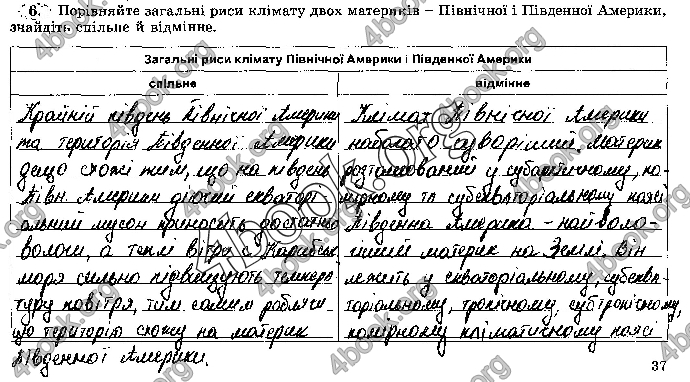 6. Порівняйте загальні риси клімату двох материків – Північної і Південної Америки,
знайдіть спільне й відмінне.
Загальні риси клімату Північної Америки і Південної Америки
спільне
відмінне
Крайній південь Північної Америки
та територія Південної Америки
дещо схожі тим, що на південь
Півн. Америки діючий екваторі-
альний мусон приносить достатньо
вологи, а теплі вітри з Карибськ.
моря сильно підвищують темпера-
туру повітря, тим самим роблячи
цю територію схожу на материк
Південної Америки.
Клімат Північної Америки
набагато суворіший. Материк
розташований у субарктичному, по-
мірному та субекваторіальному поясі
Південна Америка – найволо-
гіший материк на Землі. Він
лежить у екваторіальному, субеква-
торіальному, тропічному, субтропічному,
помірному кліматичному поясі
37
4book.org